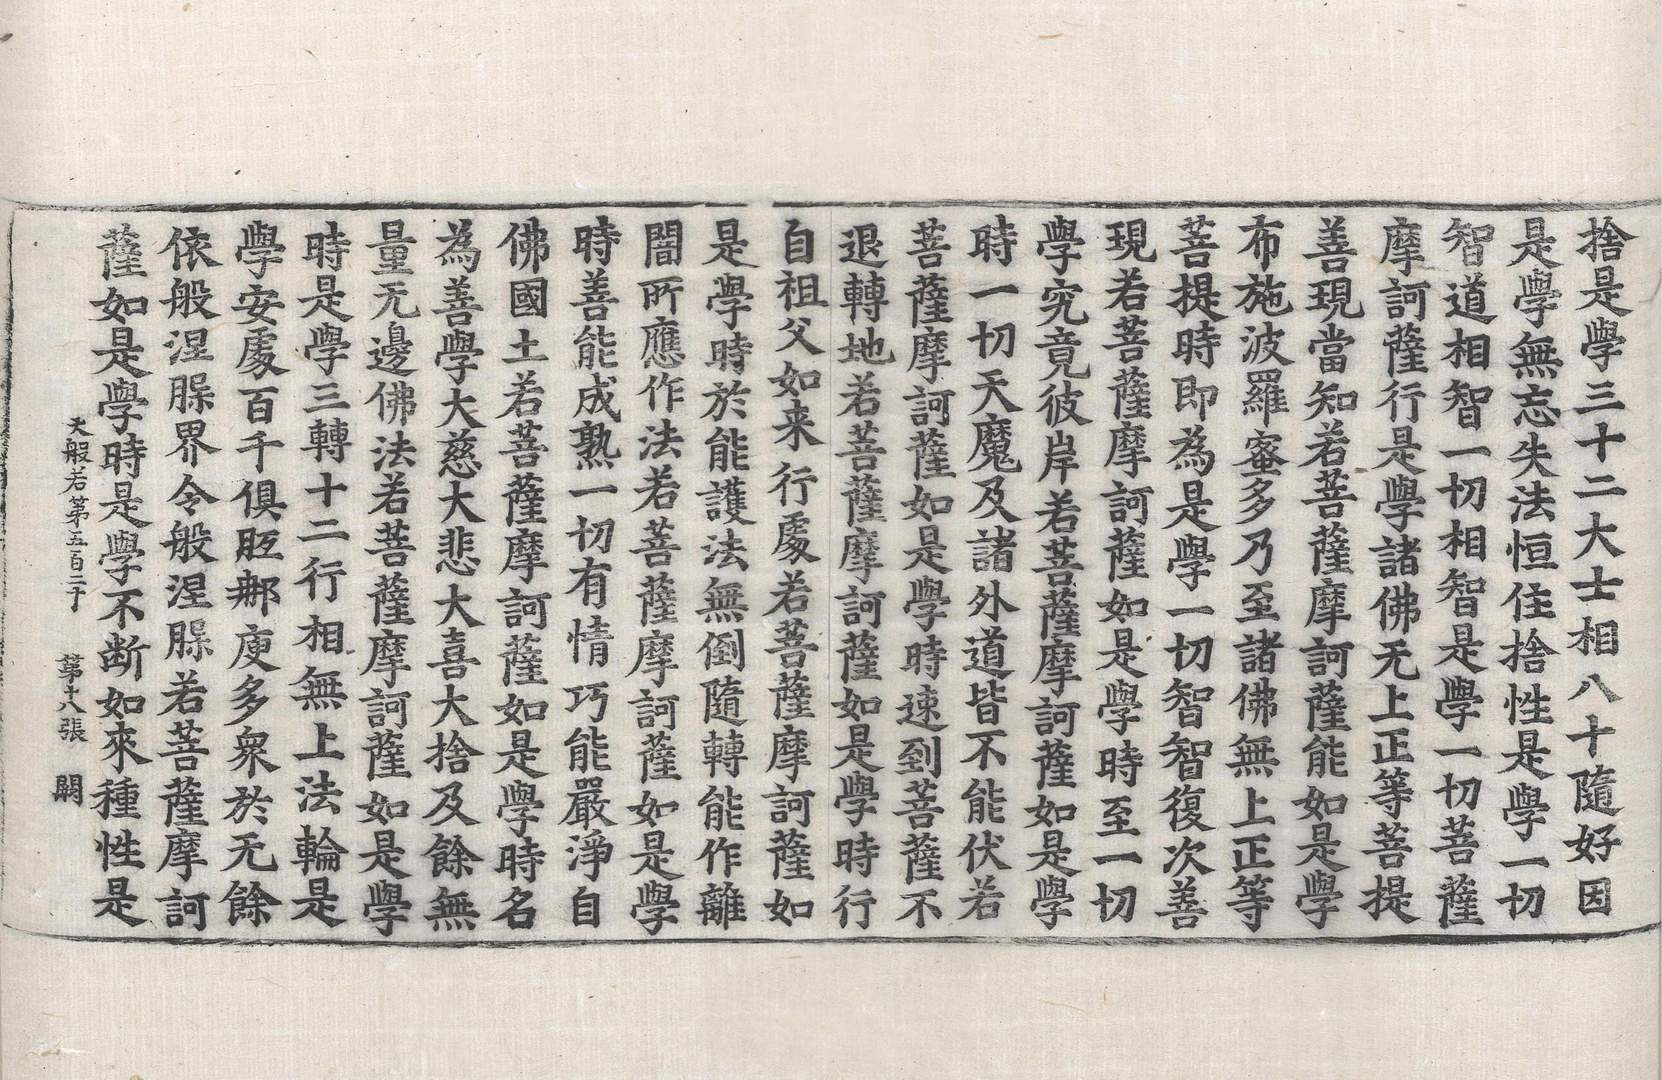 捨是學三十二大士相八十隨好因
是學無忘失法恒住捨性是學一切
智道相智一切相智是學一切菩薩
摩訶薩行是學諸佛无上正等菩提
善現當知若菩薩摩訶薩能如是學
布施波羅蜜多乃至諸佛無上正等
菩提時即為是學一切智智復次善
現若菩薩摩訶薩如是學時至一切
學究竟彼岸若菩薩摩訶薩如是學
時一切天魔及諸外道皆不能伏若
菩薩摩訶薩如是學時速到菩薩不
退轉地若菩薩摩訶薩如是學時行
自祖父如来行處若菩薩摩訶薩如
是學時於能護法無倒隨轉能作離
闇所應作法若菩薩摩訶薩如是學
時善能成熟一切有情巧能嚴淨自
佛國土若菩薩摩訶薩如是學時名
為善學大慈大悲大喜大捨及餘無
量无邊佛法若菩薩摩訶薩如是學
時是學三轉十二行相無上法輪是
學安處百千俱胝那庾多衆於无餘
依般涅槃界令般涅槃若菩薩摩訶
薩如是學時是學不斷如來種性是
大般若第五百二十 第十八張